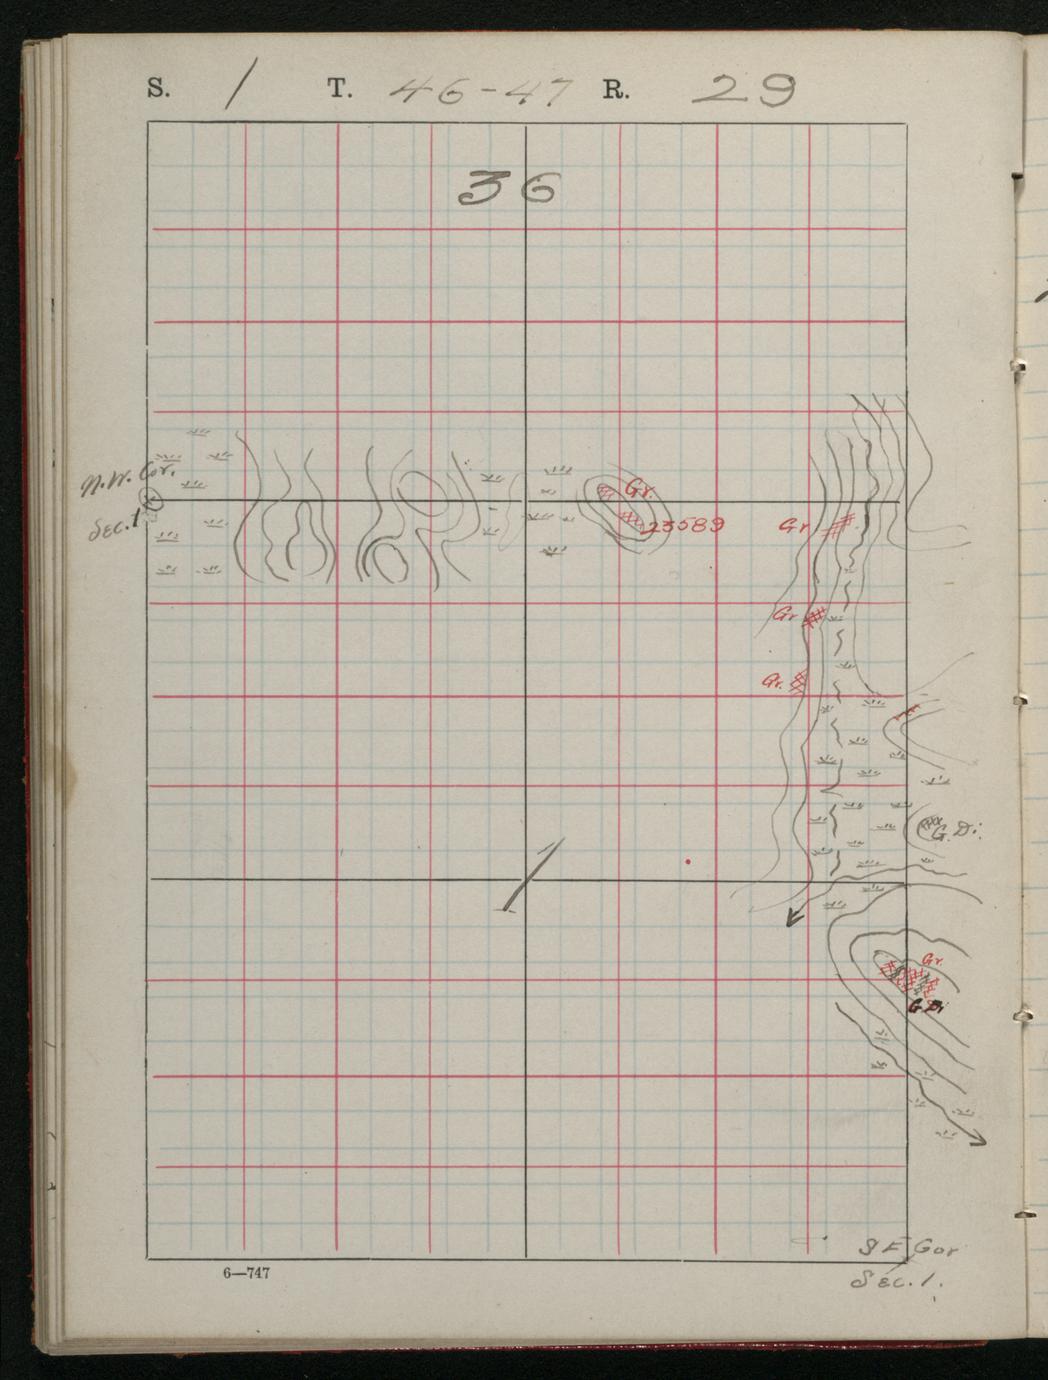 S. 1 T. 46-47 R. 29
36
N.W. Cor.
Sec. 1
Gr.
23589
Gr
Gr
Gr.
G. Di.
1
Gr.
G Di
S E Cor
Sec. 1.
6—747